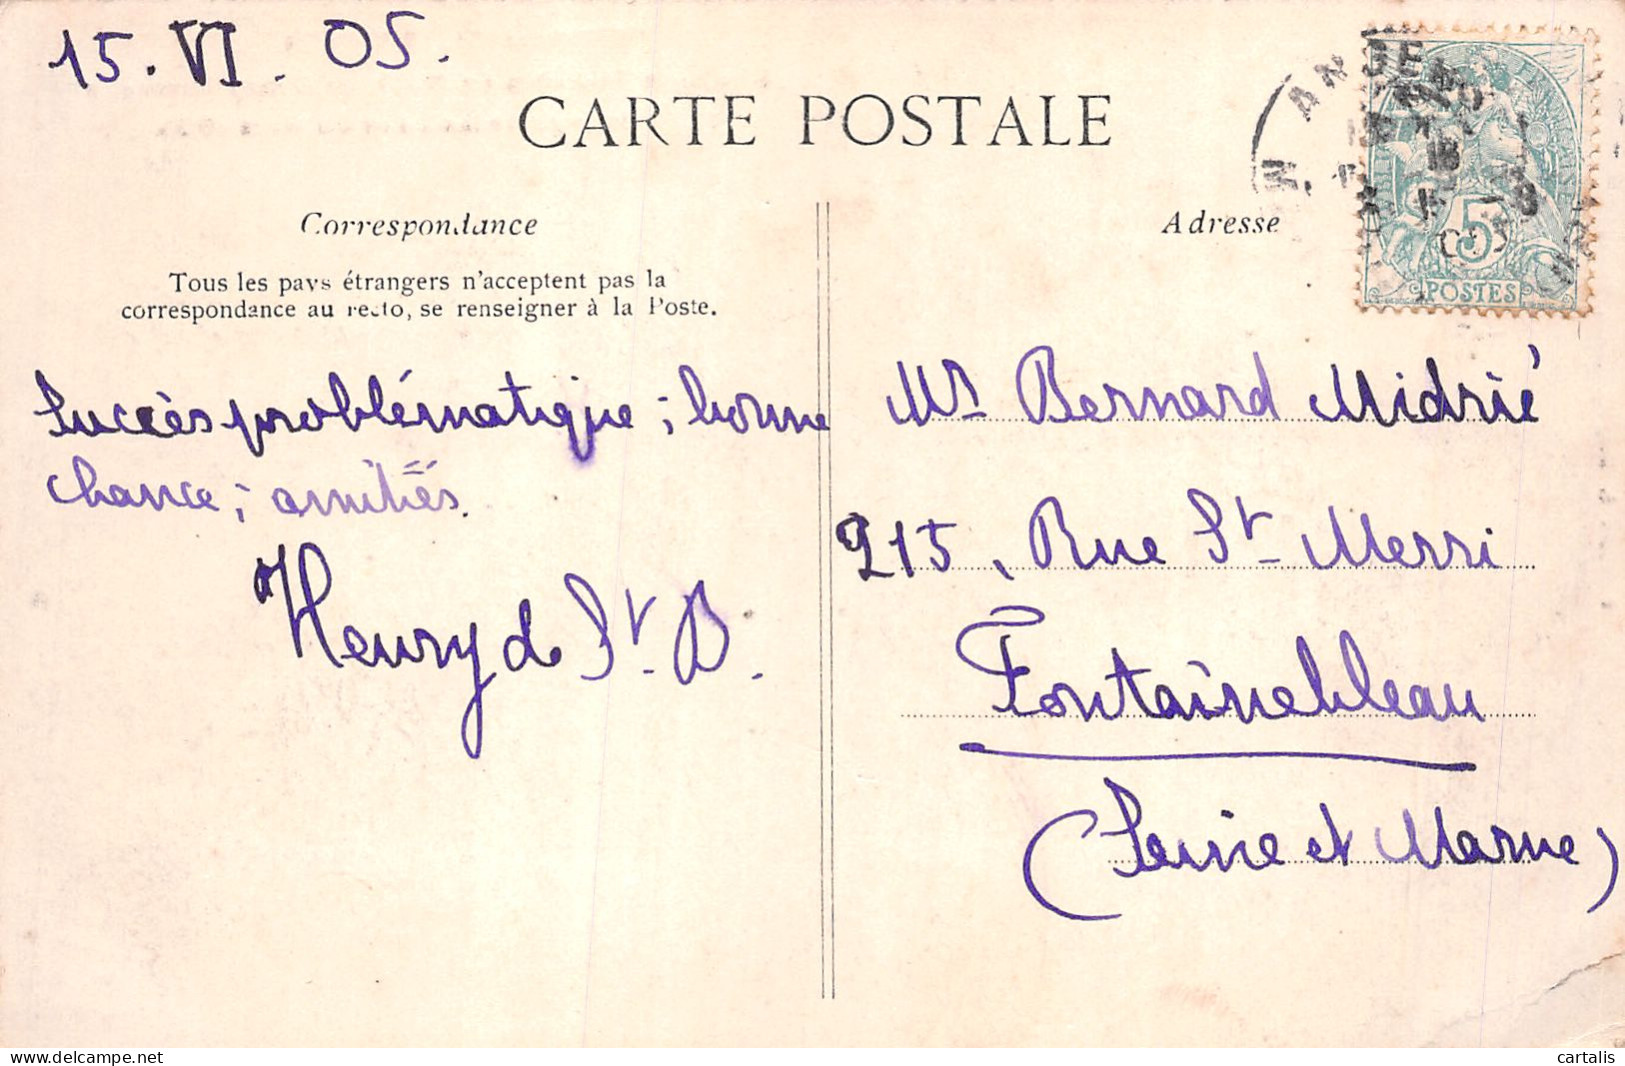 15. VI. 05.
CARTE POSTALE
Correspondance
Adresse
Tous les pays étrangers n'acceptent pas la
correspondance au recto, se renseigner à la Poste.
5
POSTES
Succès problématique ; bonne
chance ; amitiés.
Henry de St. B.
Mr Bernard Midrié
215, Rue St Merri
Fontainebleau
(Seine et Marne)
cartalis